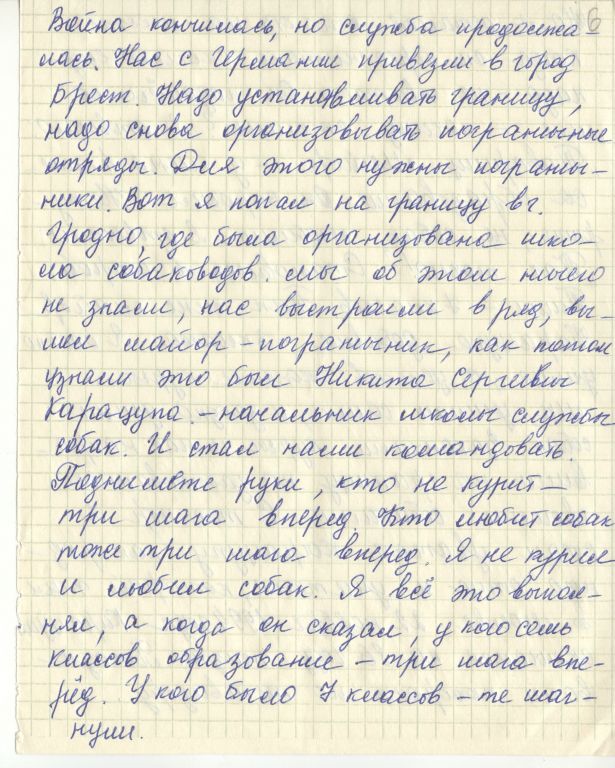 6
Война кончилась, но служба продолжа
лась. Нас с Германии привезли в город
Брест. Надо устанавливать границу,
надо снова организовывать пограничные
отряды. Для этого нужны погранич-
ники. Вот я попал на границу в г.
Гродно, где была организована шко-
ла собаководов. Мы об этом ничего
не знали, нас выстроили в ряд, вы-
шел майор - пограничник, как потом
узнали это был Никита Сергеевич
Карацупа - начальник школы службы
собак. И стал нами командовать.
Поднимите руки, кто не курит -
три шага вперед. Кто любит собак
тоже три шага вперед. Я не курил
и любил собак. Я всё это выпол-
нял, а когда он сказал, у кого семь
классов образование - три шага впе-
рёд. У кого было 7 классов - те шаг-
нули.